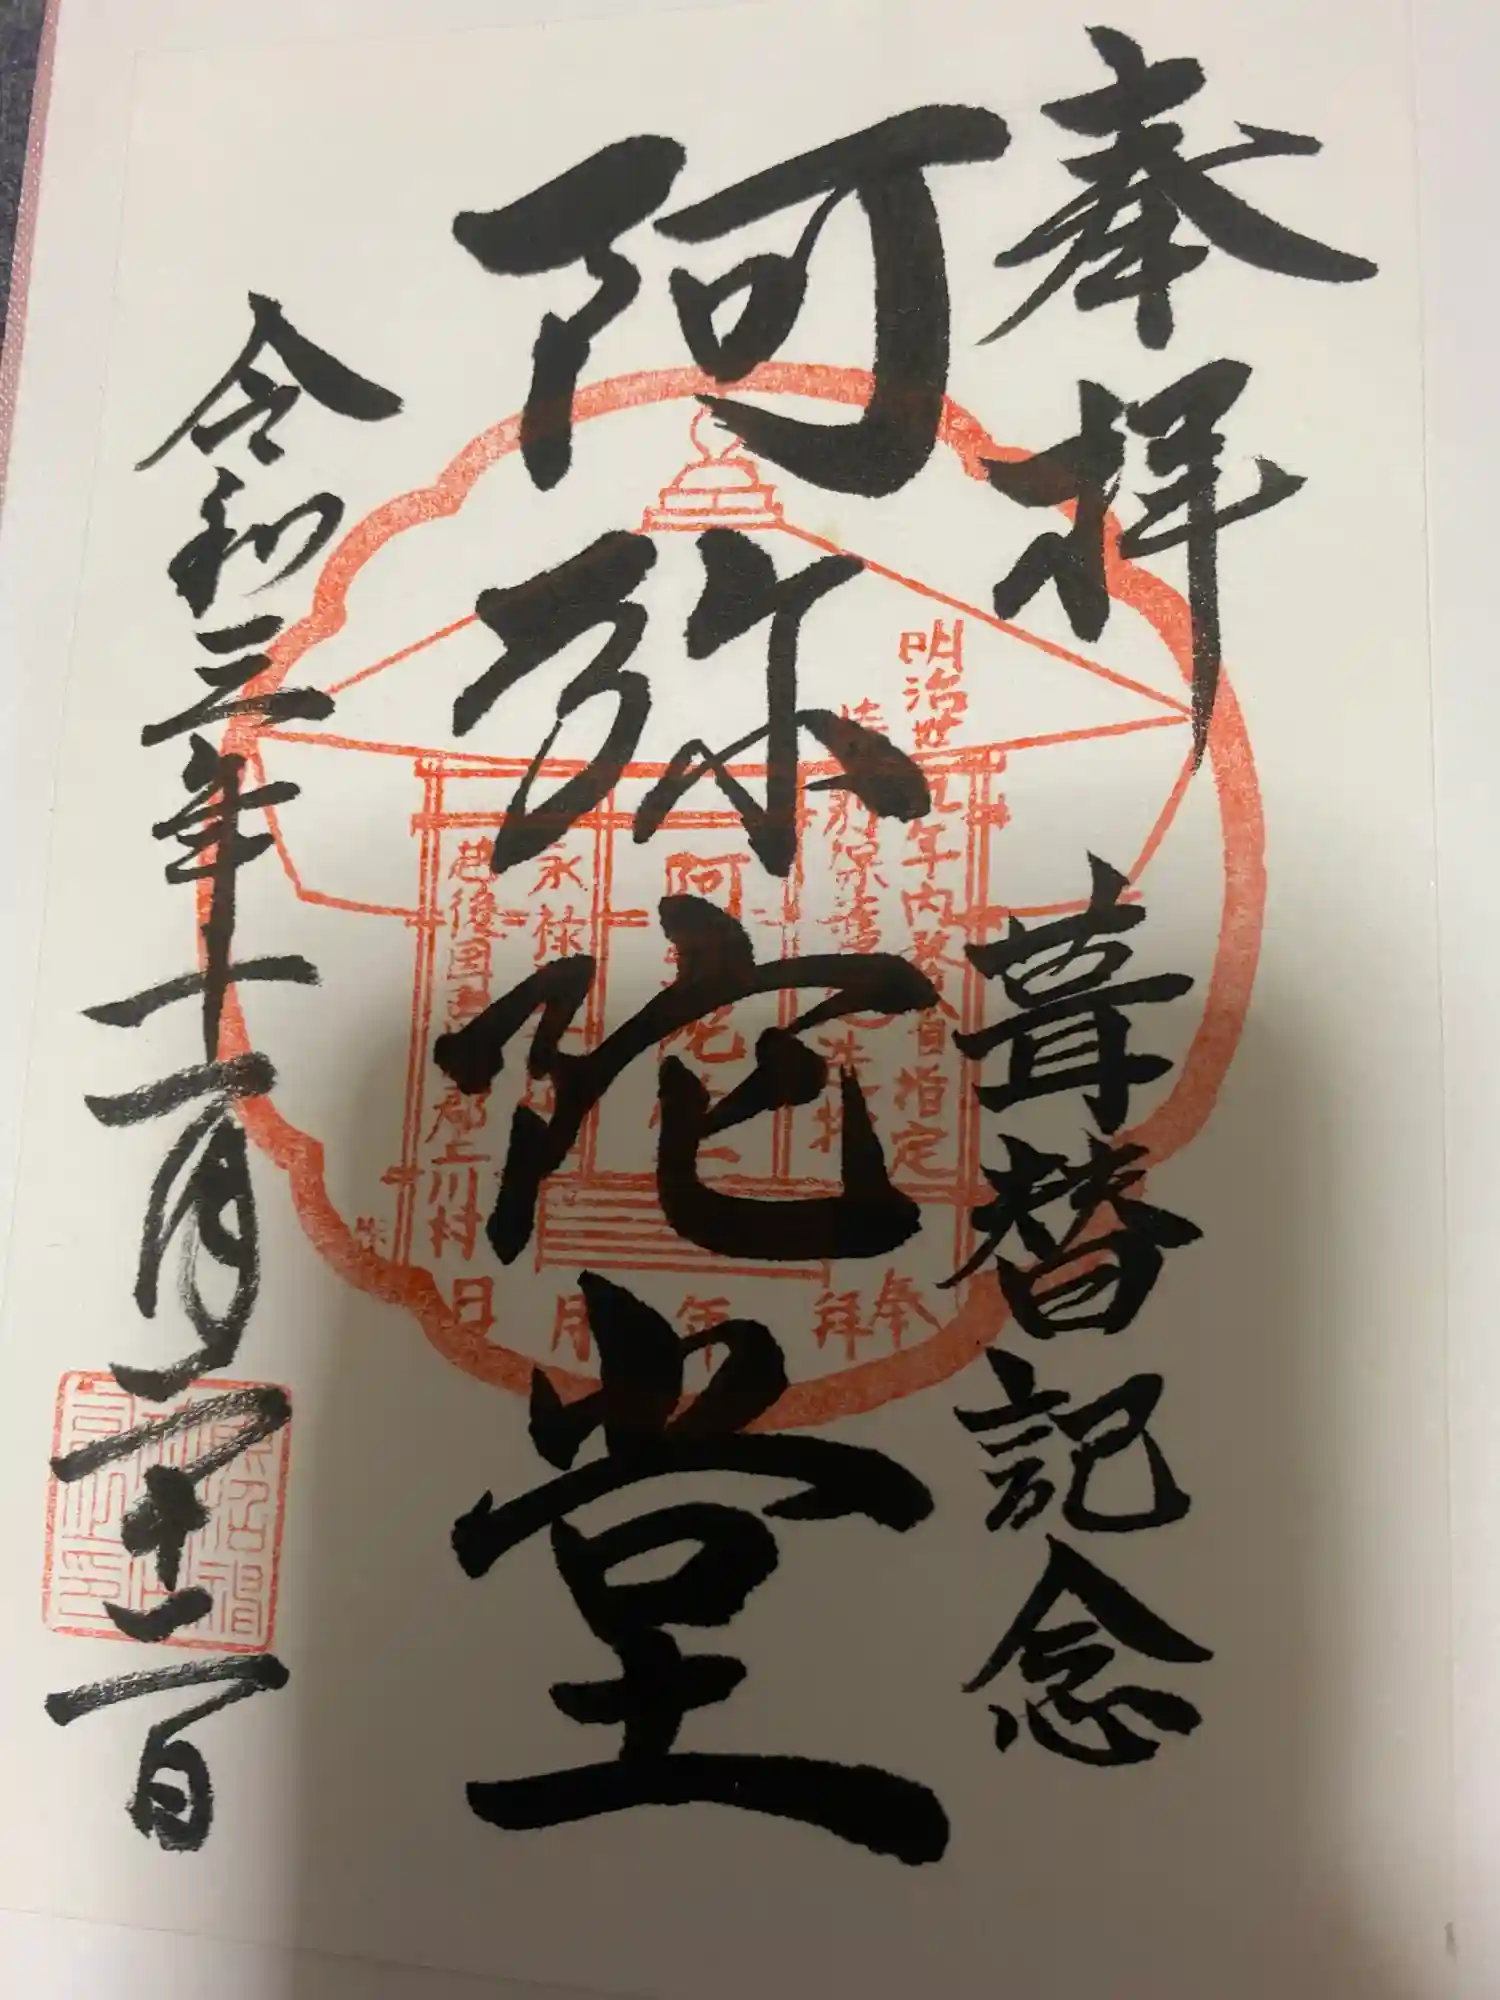 奉拝
葺替記念
阿弥陀堂
令和三年十一月二十一日
明治丗九年内務省
指定
特別保護建造物
阿弥陀堂
永禄
越後國東
郡上川村
奉拜
年
月
日